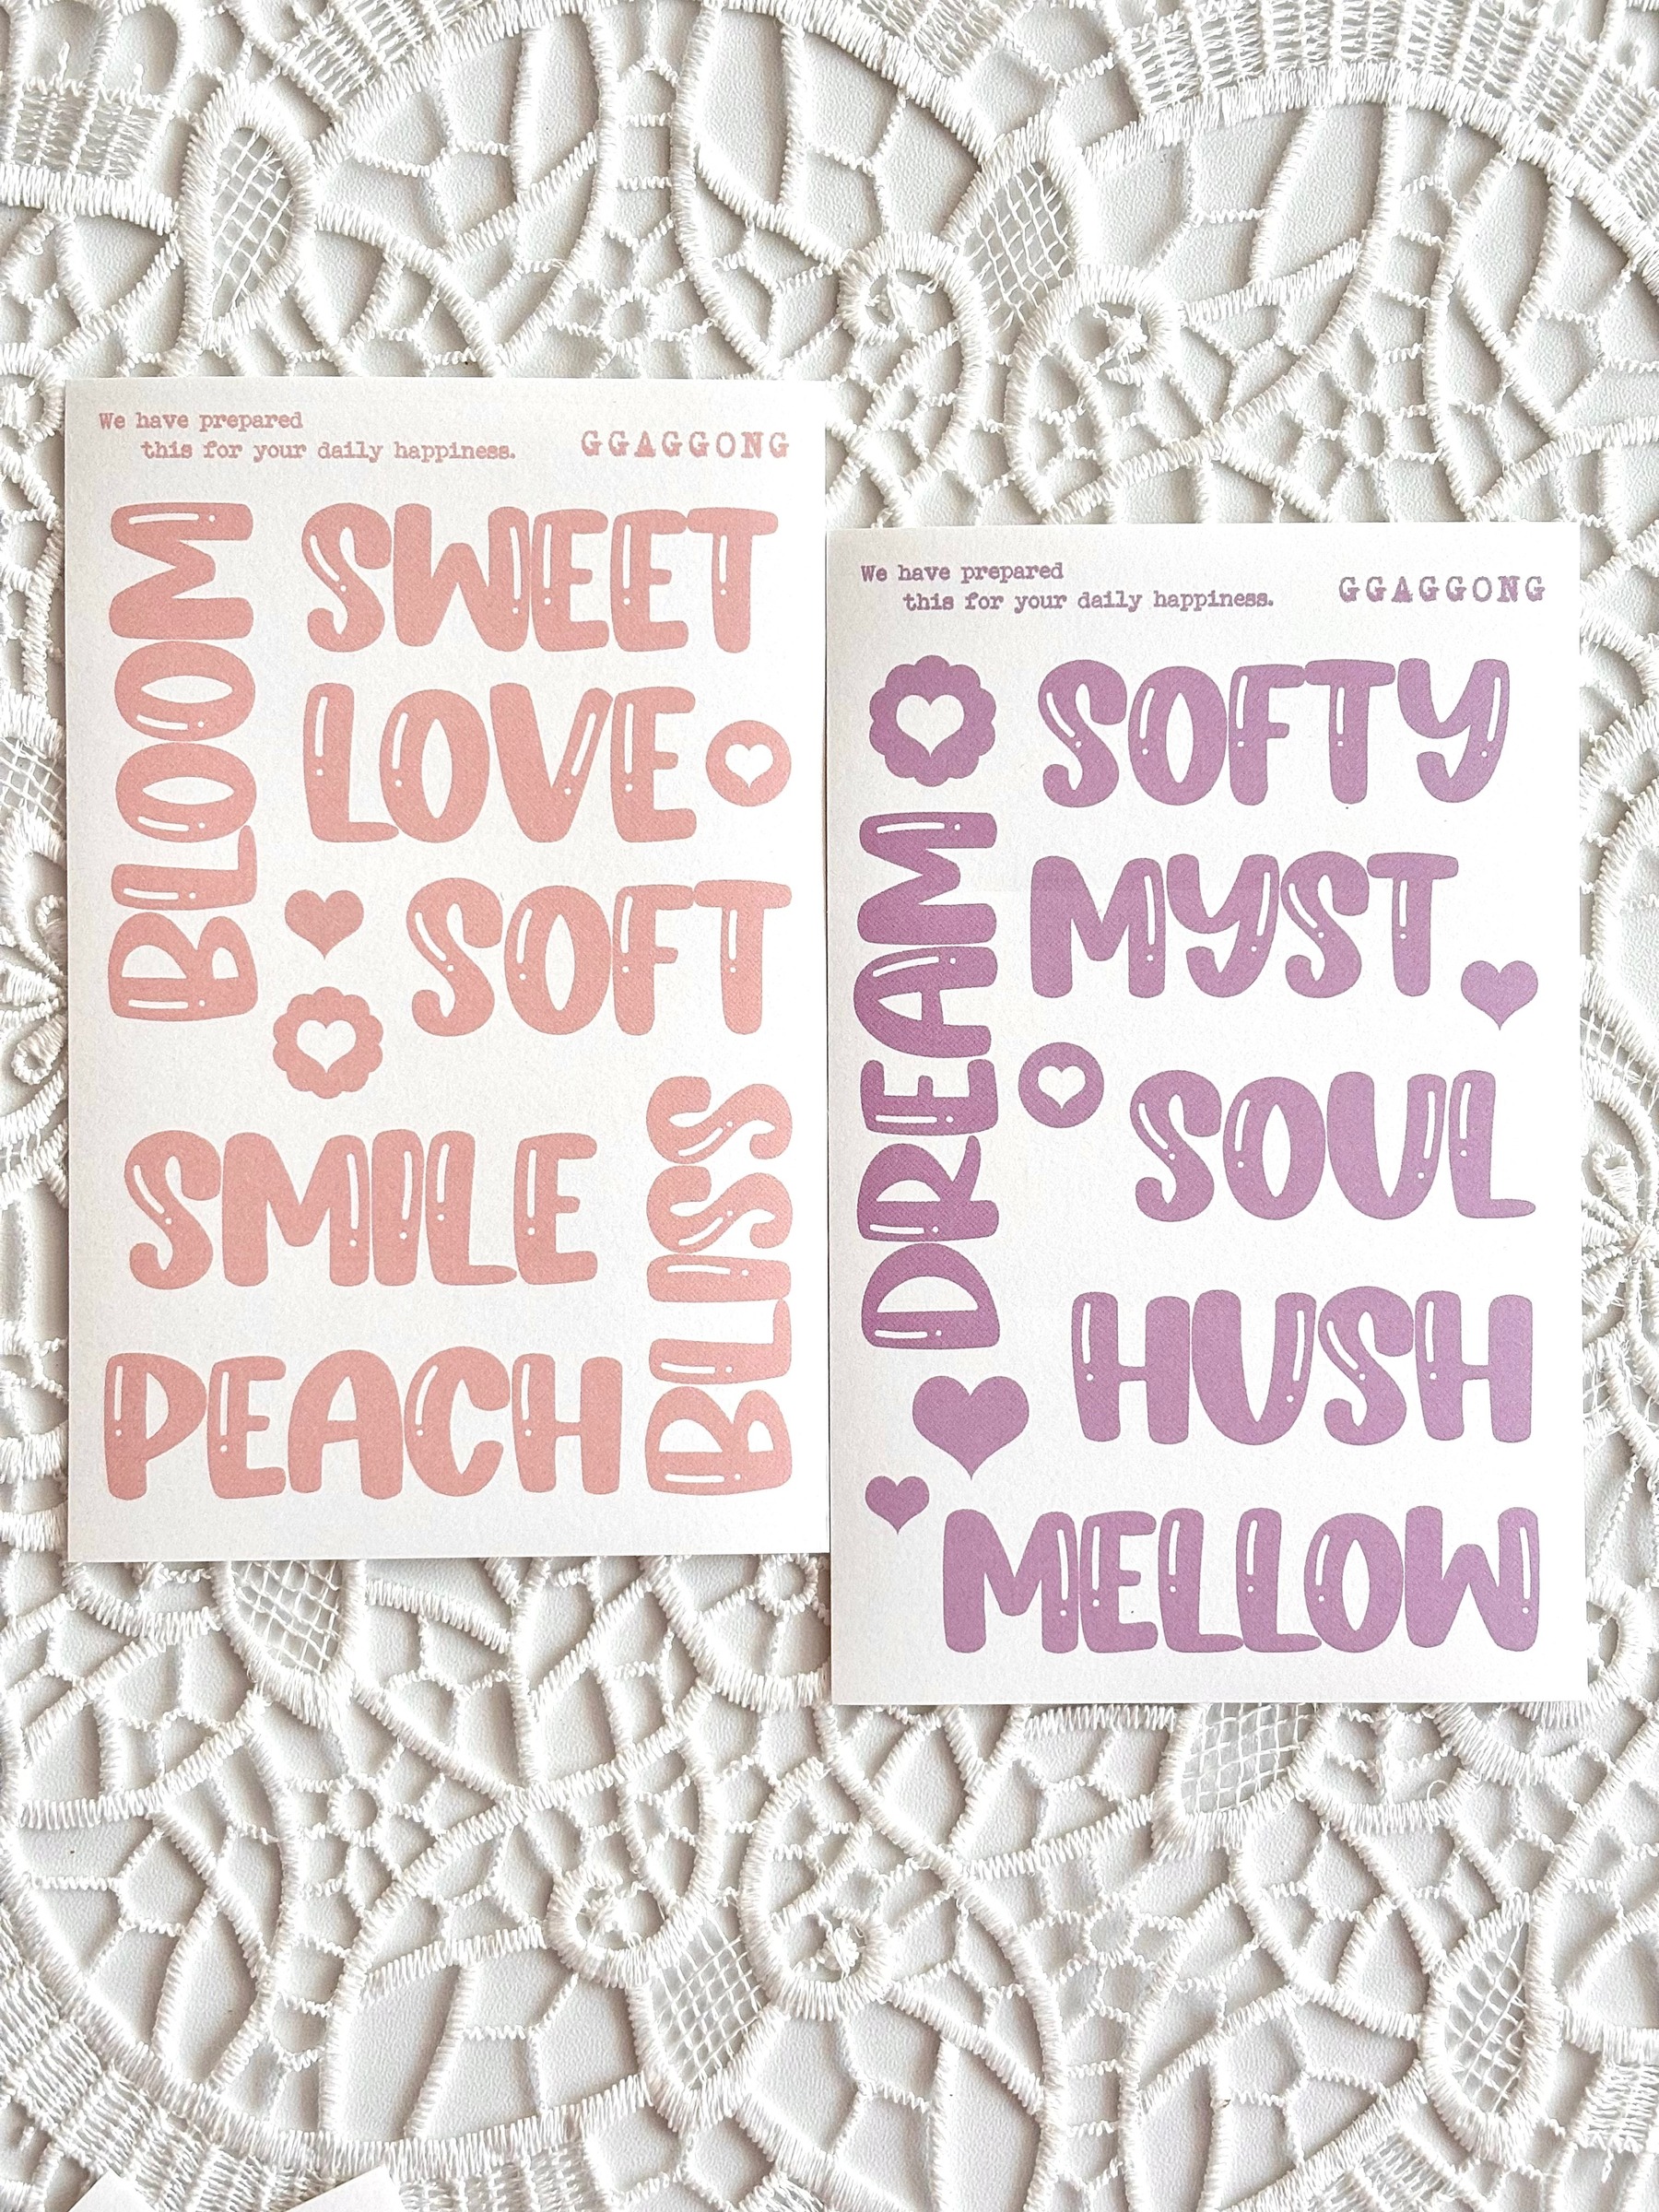 We have prepared
this for your daily happiness.
GGAGGONG
BLOOM
SWEET
LOVE
SOFT
SMILE
BLISS
PEACH
We have prepared
this for your daily happiness.
GGAGGONG
SOFTY
DREAM
MYST
SOUL
HUSH
MELLOW